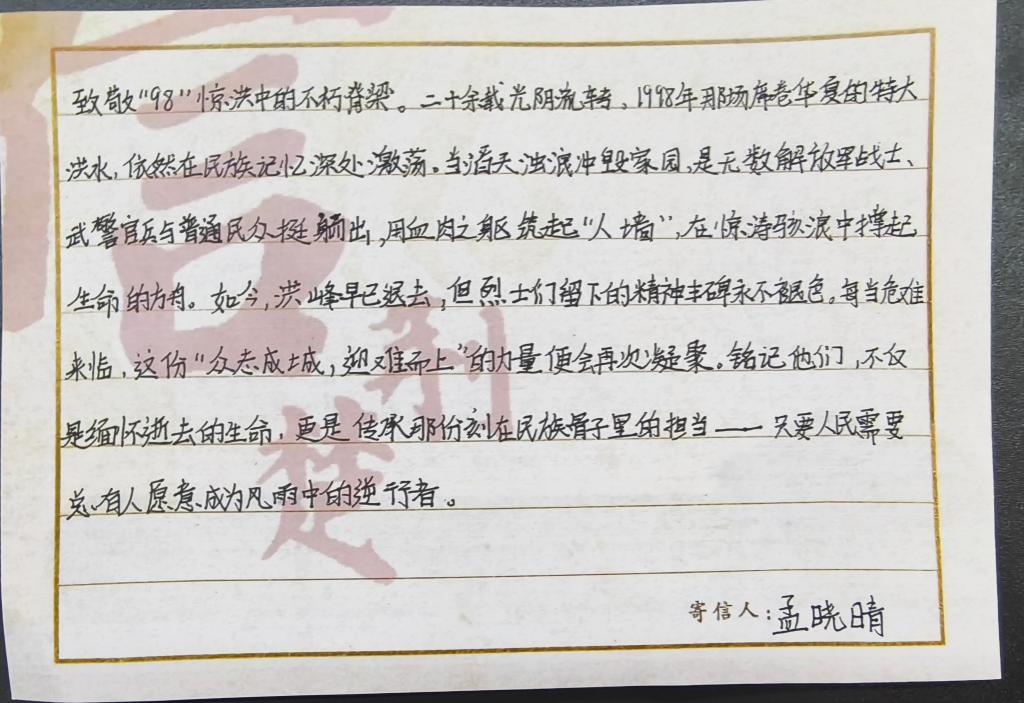 致敬“98”惊洪中的不朽脊梁。二十余载光阴流转，1998年那场席卷华夏的特大
洪水，依然在民族记忆深处激荡。当滔天浊浪冲毁家园，是无数解放军战士、
武警官兵与普通民众挺躺出，用血肉之躯筑起“人墙”，在惊涛骇浪中撑起
生命的方舟。如今，洪峰早已退去，但烈士们留下的精神丰碑永不褪色。每当危难
来临，这份“众志成城，迎难而上”的力量便会再次凝聚。铭记他们，不仅
是缅怀逝去的生命，更是传承那份刻在民族骨子里的担当——只要人民需要
总有人愿意成为风雨中的逆行者。
寄信人：孟晓晴
信
荆楚